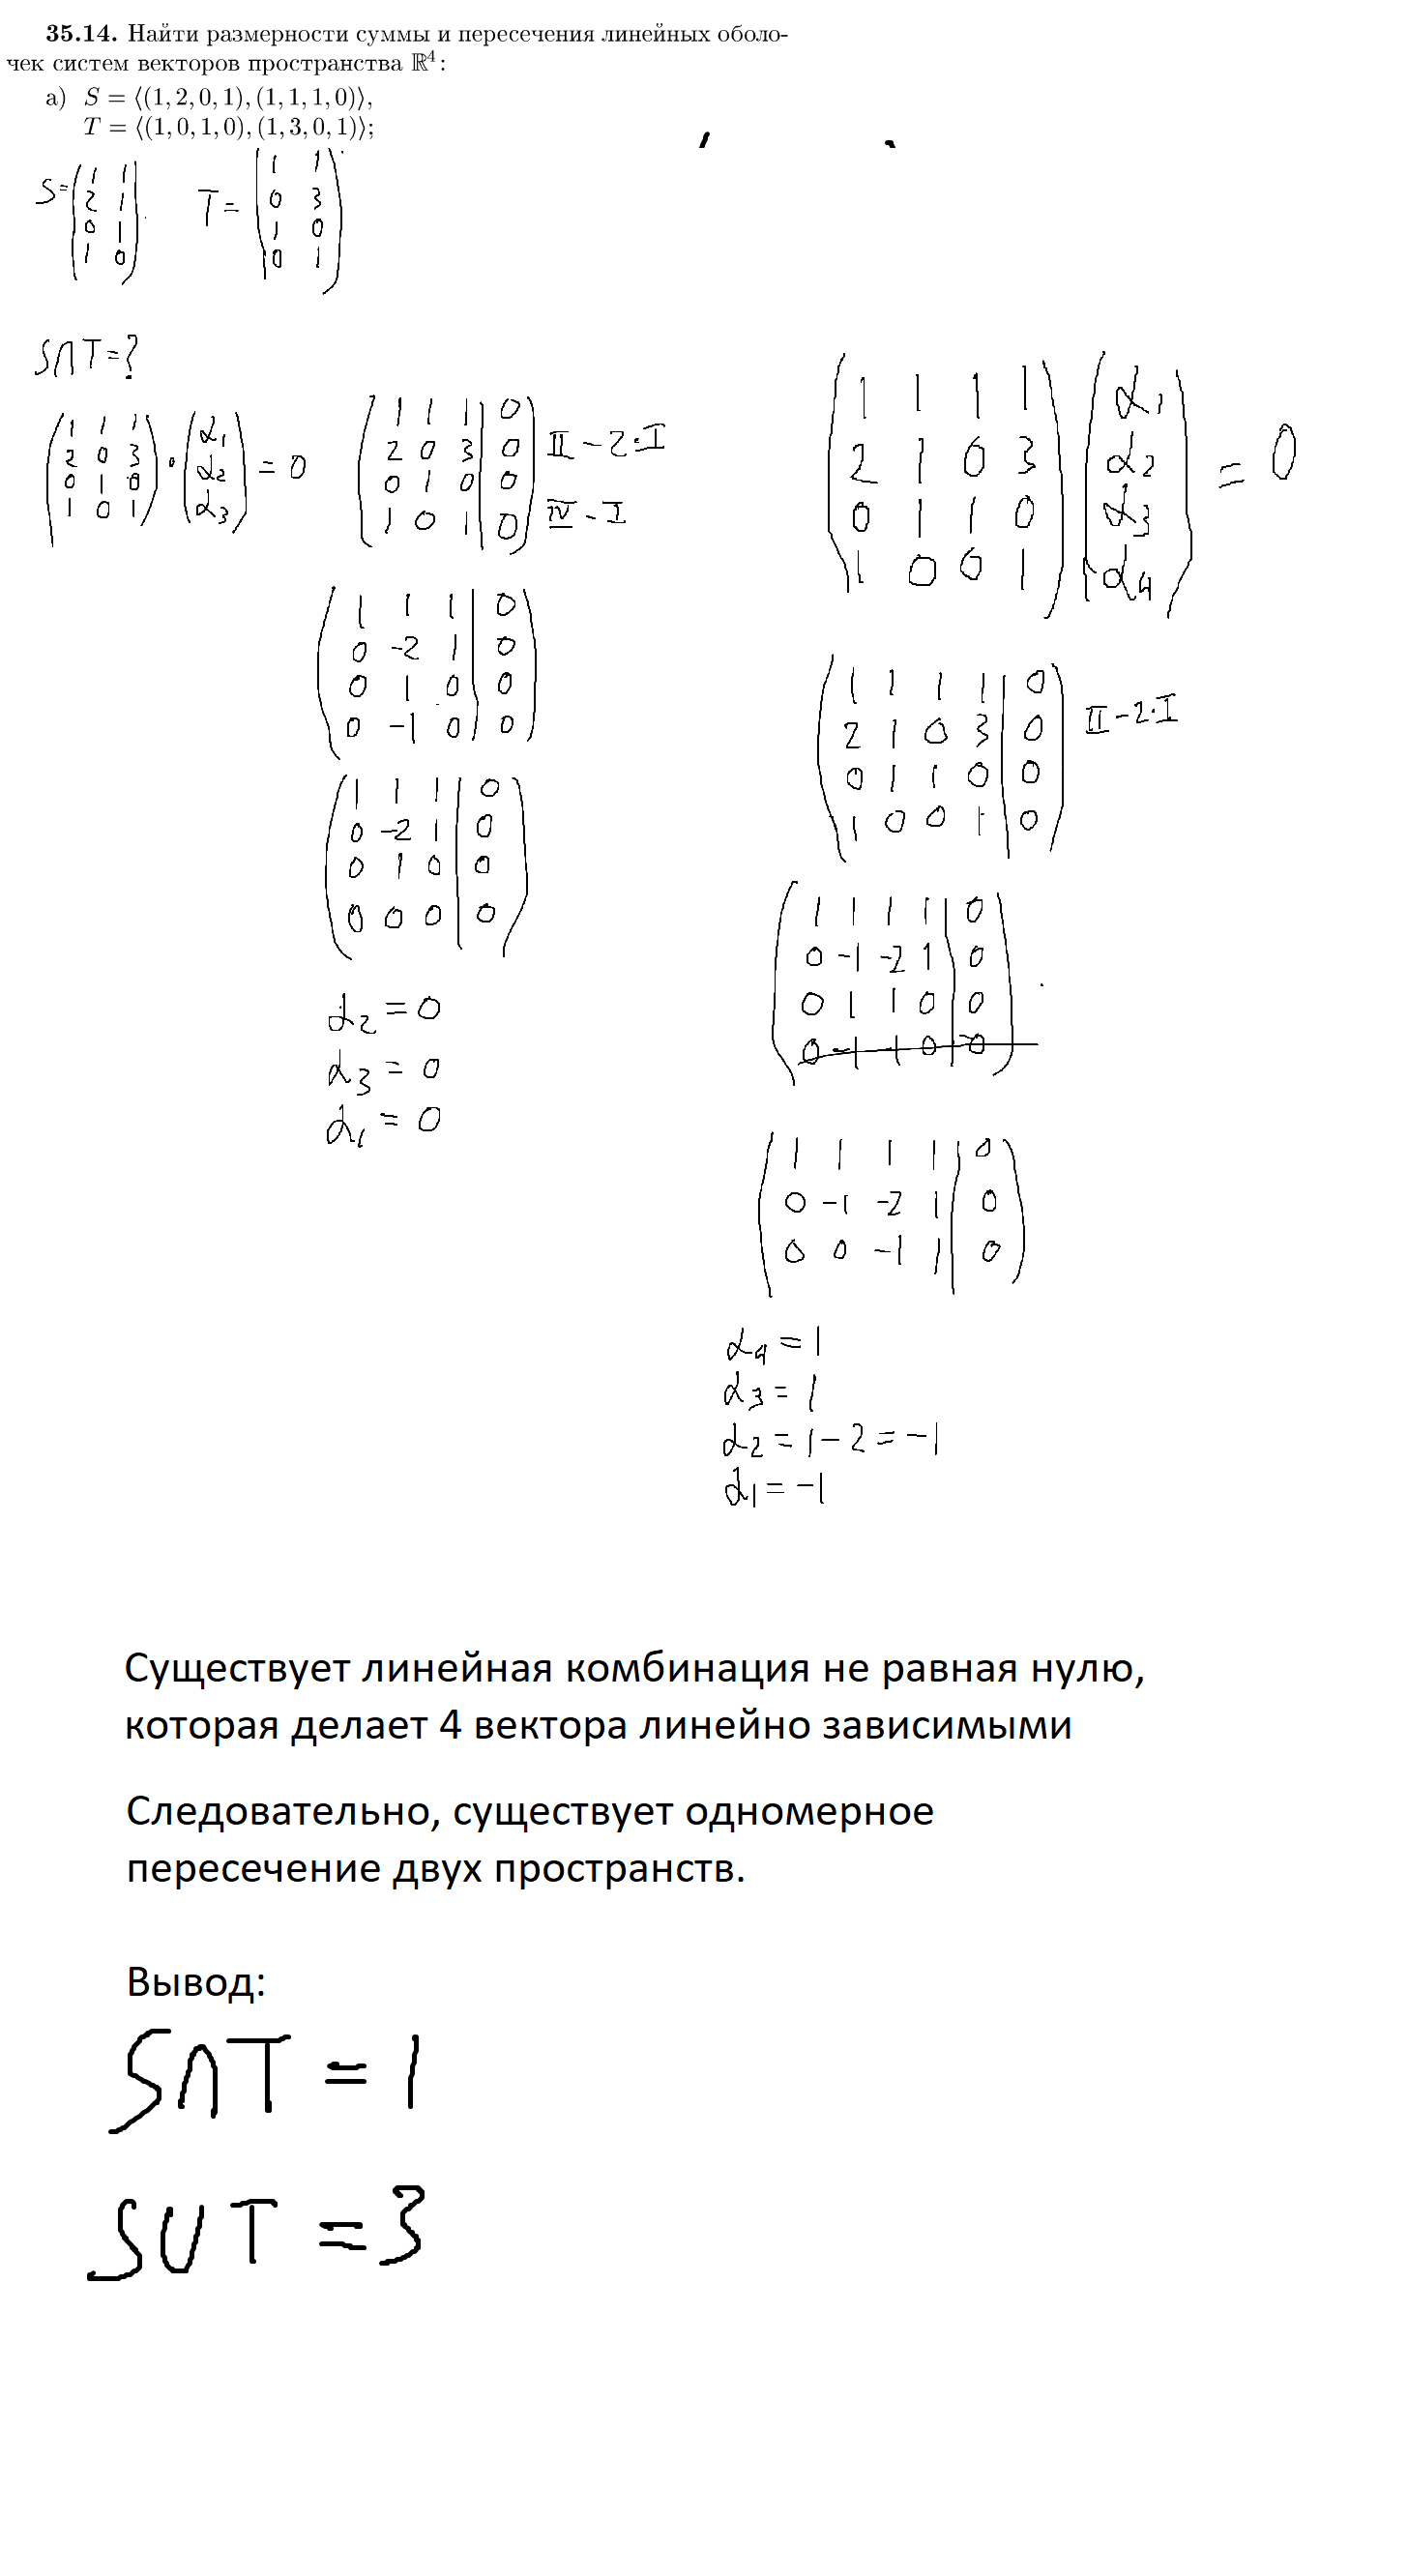 35.14. Найти размерности суммы и пересечения линейных оболо-
чек систем векторов пространства ℝ⁴:
а) S = ⟨(1, 2, 0, 1), (1, 1, 1, 0)⟩,
T = ⟨(1, 0, 1, 0), (1, 3, 0, 1)⟩;
S= ( 1 1
2 1
0 1
1 0 )
T = ( 1 1
0 3
1 0
0 1 )
S∩T=?
( 1 1 1
2 0 3
0 1 0
1 0 1 ) · ( α₁
α₂
α₃ ) = 0
( 1 1 1 | 0
2 0 3 | 0 ) II - 2·I
0 1 0 | 0
1 0 1 | 0 ) IV - I
( 1 1 1 | 0
0 -2 1 | 0
0 1 0 | 0
0 -1 0 | 0 )
( 1 1 1 | 0
0 -2 1 | 0
0 1 0 | 0
0 0 0 | 0 )
α₂ = 0
α₃ = 0
α₁ = 0
( 1 1 1 1
2 1 0 3
0 1 1 0
1 0 0 1 ) ( α₁
α₂
α₃
α₄ ) = 0
( 1 1 1 1 | 0
2 1 0 3 | 0 II - 2·I
0 1 1 0 | 0
1 0 0 1 | 0 )
( 1 1 1 1 | 0
0 -1 -2 1 | 0
0 1 1 0 | 0
0 -1 -1 0 | 0 )
( 1 1 1 1 | 0
0 -1 -2 1 | 0
0 0 -1 1 | 0 )
α₄ = 1
α₃ = 1
α₂ = 1 - 2 = -1
α₁ = -1
Существует линейная комбинация не равная нулю,
которая делает 4 вектора линейно зависимыми
Следовательно, существует одномерное
пересечение двух пространств.
Вывод:
S∩T = 1
S∪T = 3